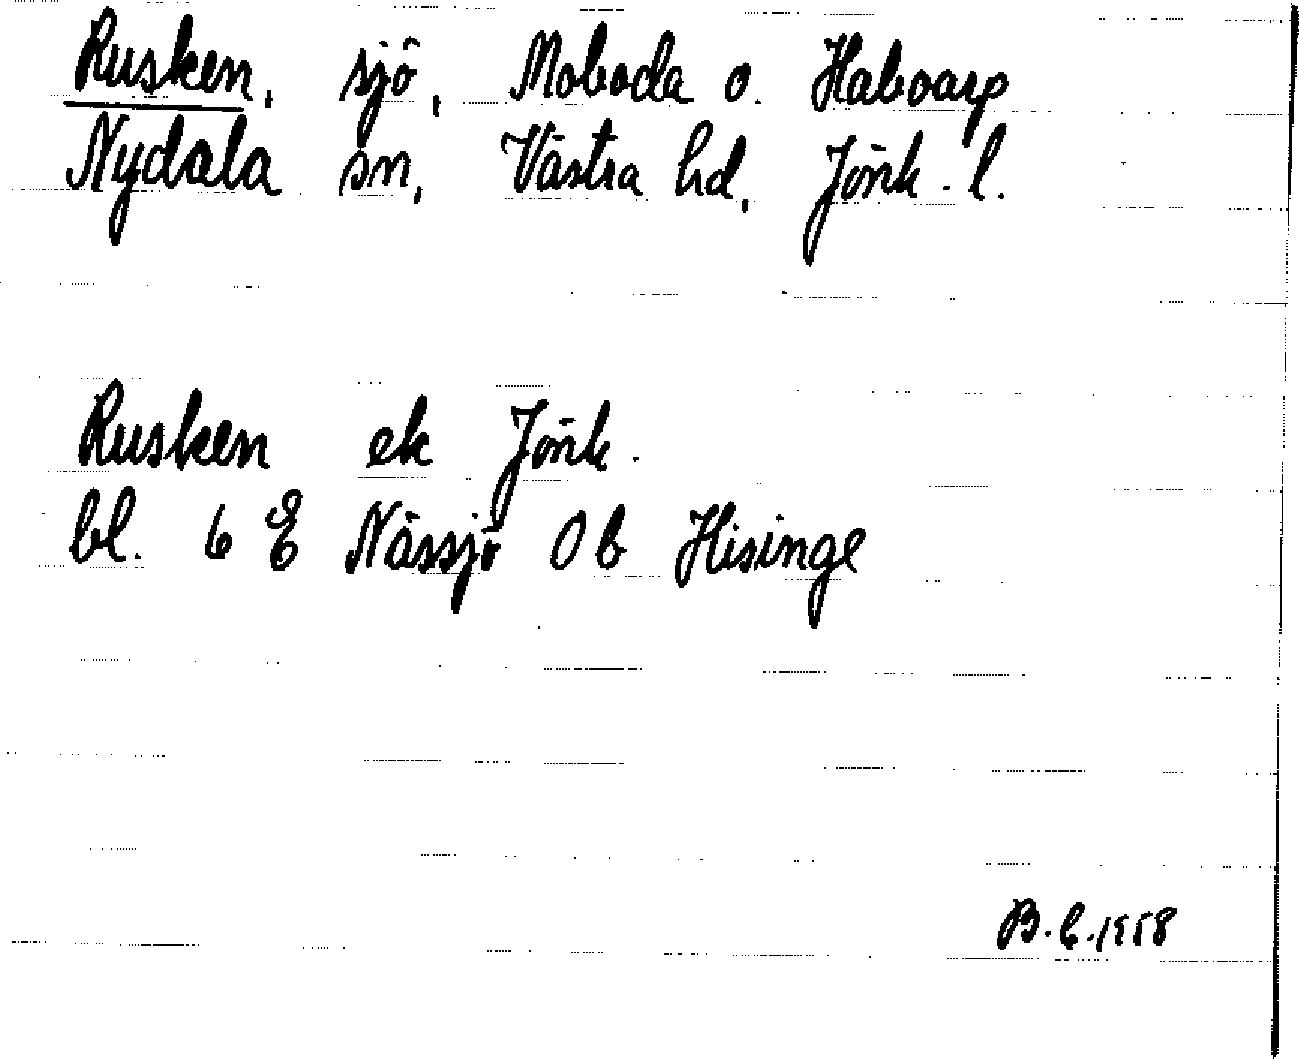 Rusken, sjö, Moboda o. Haboarp
Nydala sn, Västra hd, Jönk. l.
Rusken ek Jönk.
bl. 6 E Nässjö 0 b Hisinge
B.E. 1958